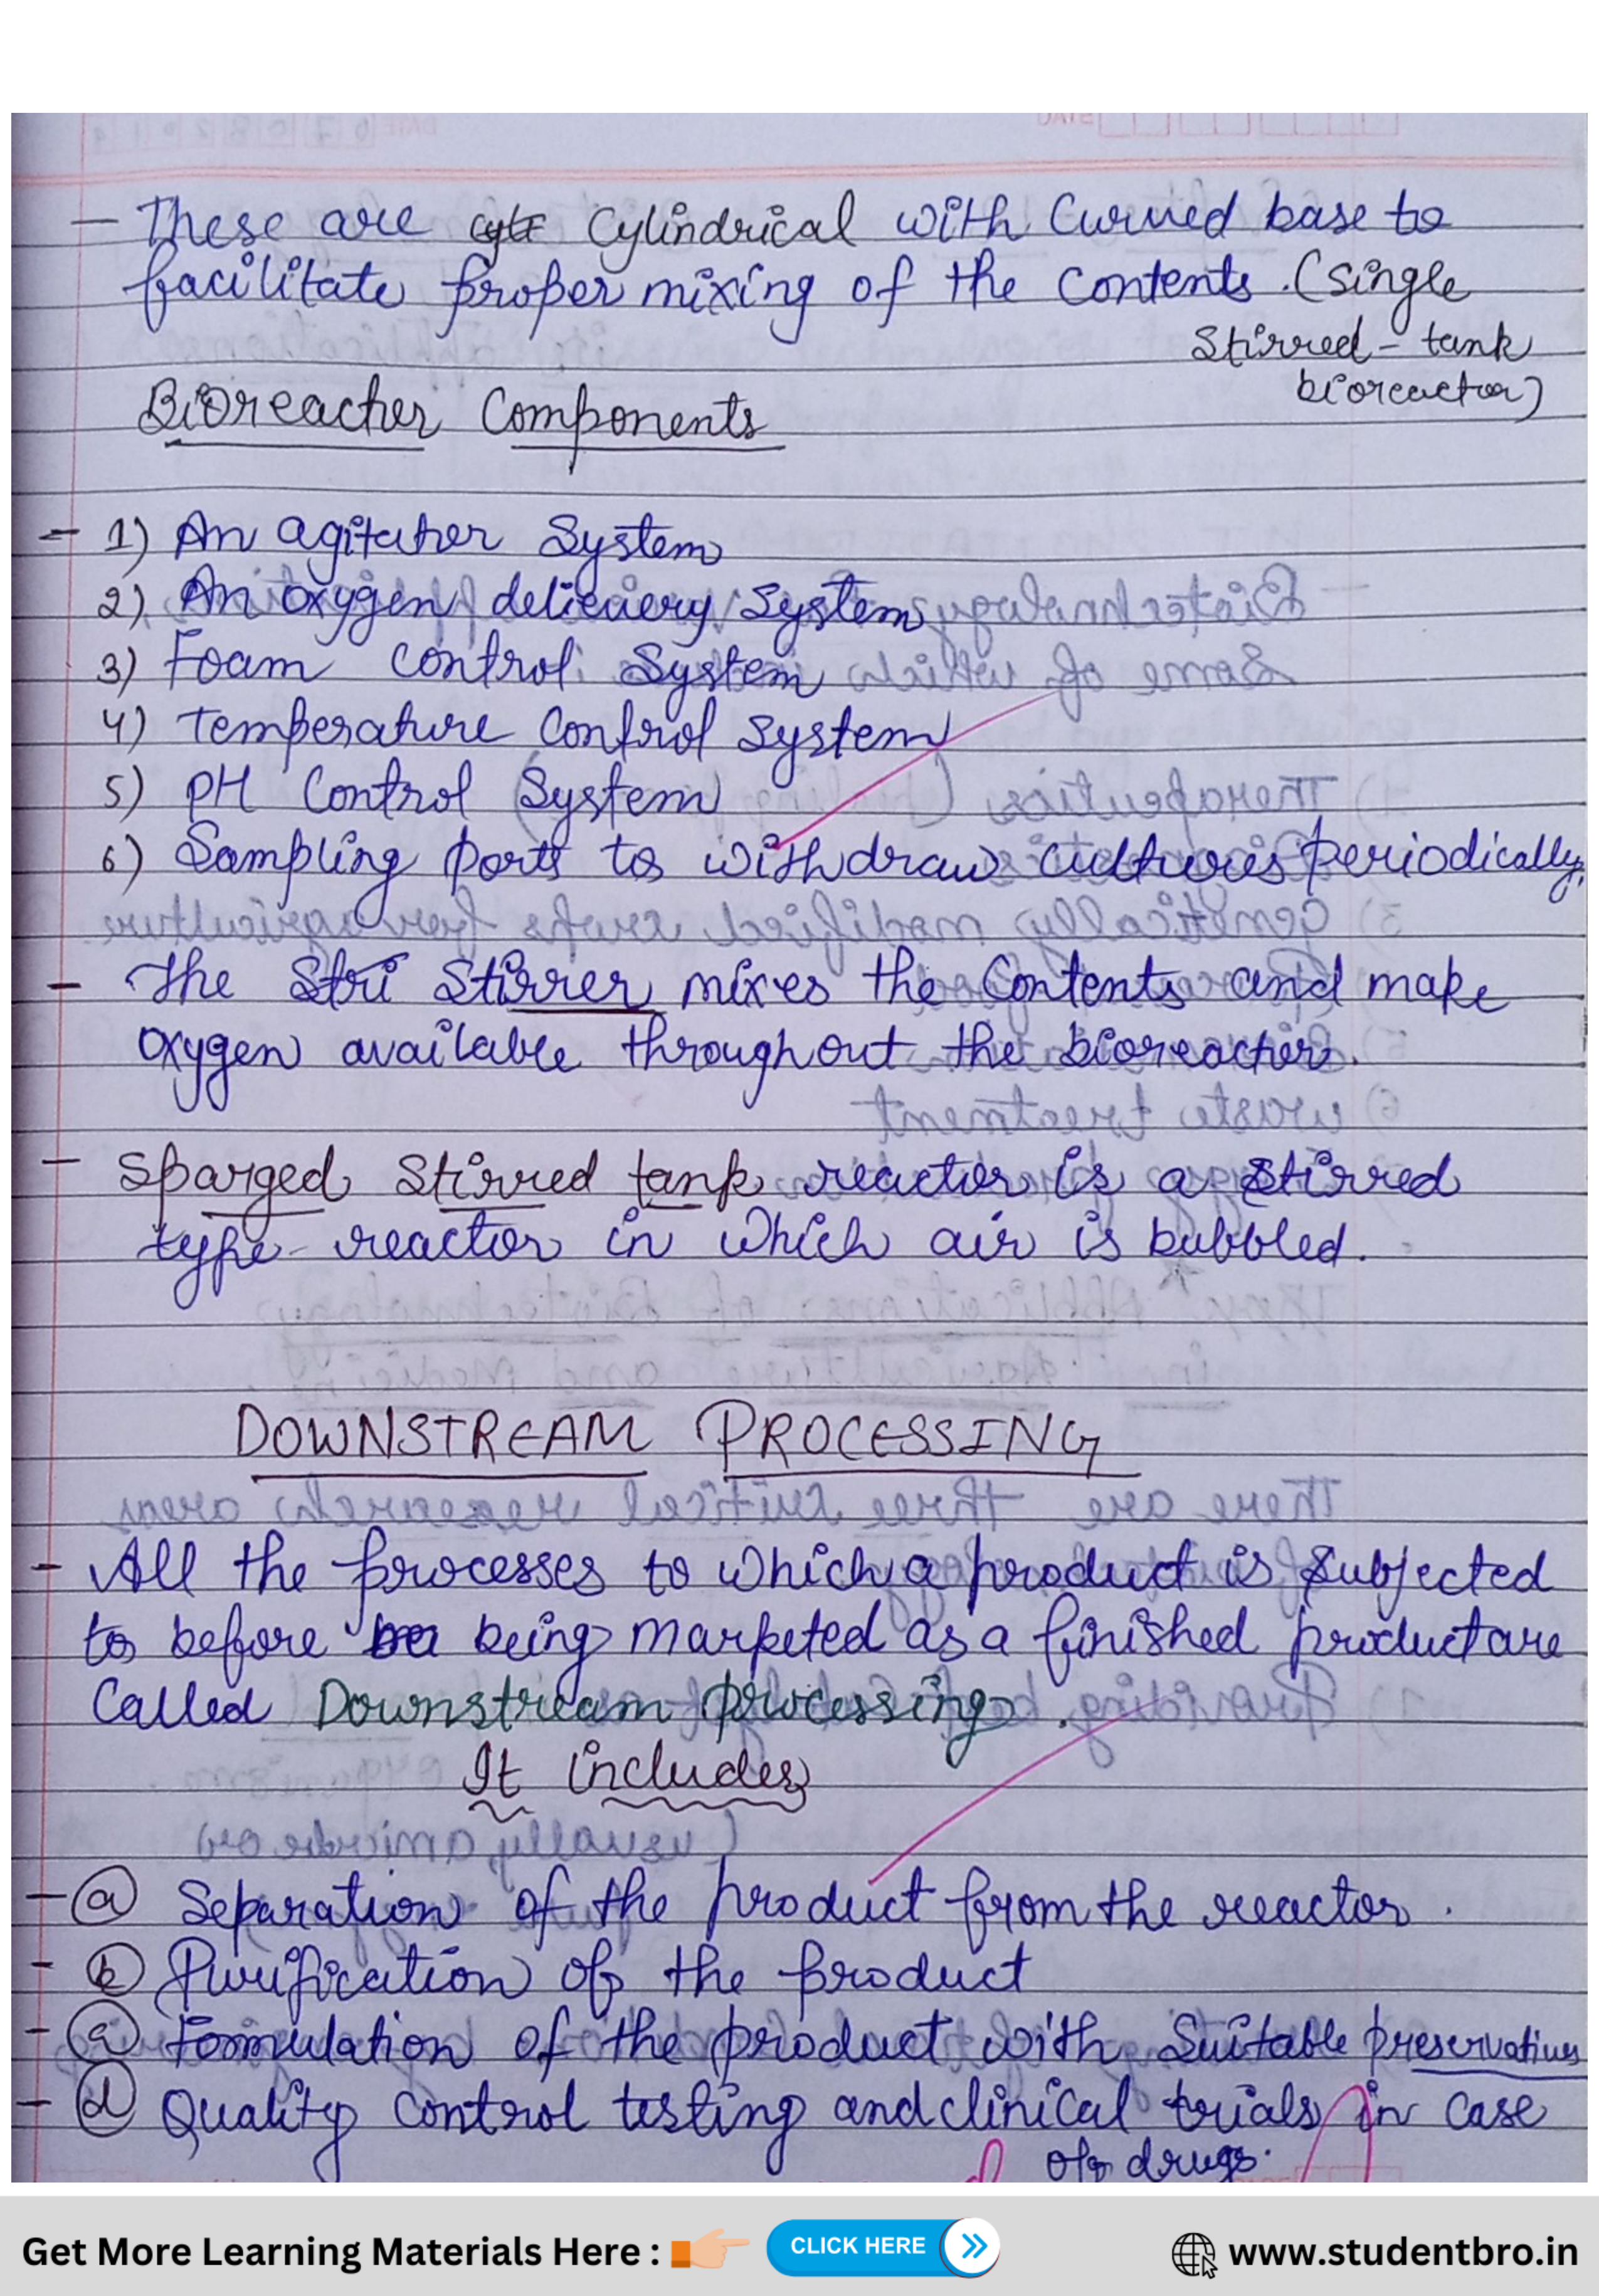 - These are cyli Cylindrical with Curved base to
facilitate proper mixing of the contents. (single
Stirred - tank
bioreactor)
Bioreactor Components
- 1) An agitator System
2) An oxygen delievery System
3) Foam control System
4) Temperature Control System
5) PH Control System
6) Sampling ports to withdraw cultures periodically.
- The Stri Stirrer mixes the Contents and make
oxygen available throughout the bioreactor.
- Sparged Stirred tank reactor is a stirred
type reactor in which air is bubbled.
DOWNSTREAM PROCESSING
- All the processes to which a product is Subjected
to before being marketed as a finished product are
Called Downstream processing.
It includes
- a Separation of the product from the reactor.
- b Purification of the product
- c Formulation of the product with Suitable preservatives
- d Quality Control testing and clinical trials in case
of drugs.
Get More Learning Materials Here : CLICK HERE www.studentbro.in